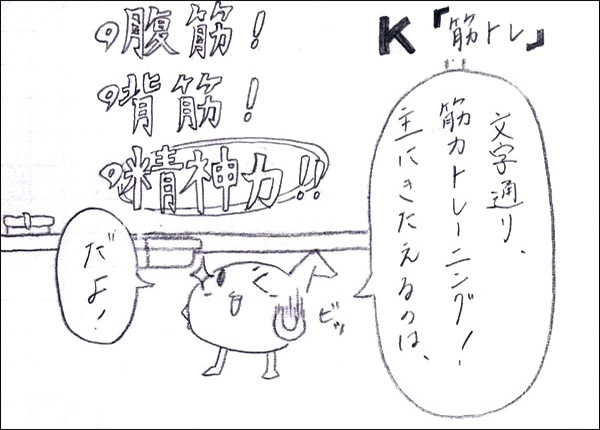 K「筋トレ」
文字通り、
筋力トレーニング!
主にきたえるのは、
腹筋!
背筋!
精神力!!
ビッ
だよ!